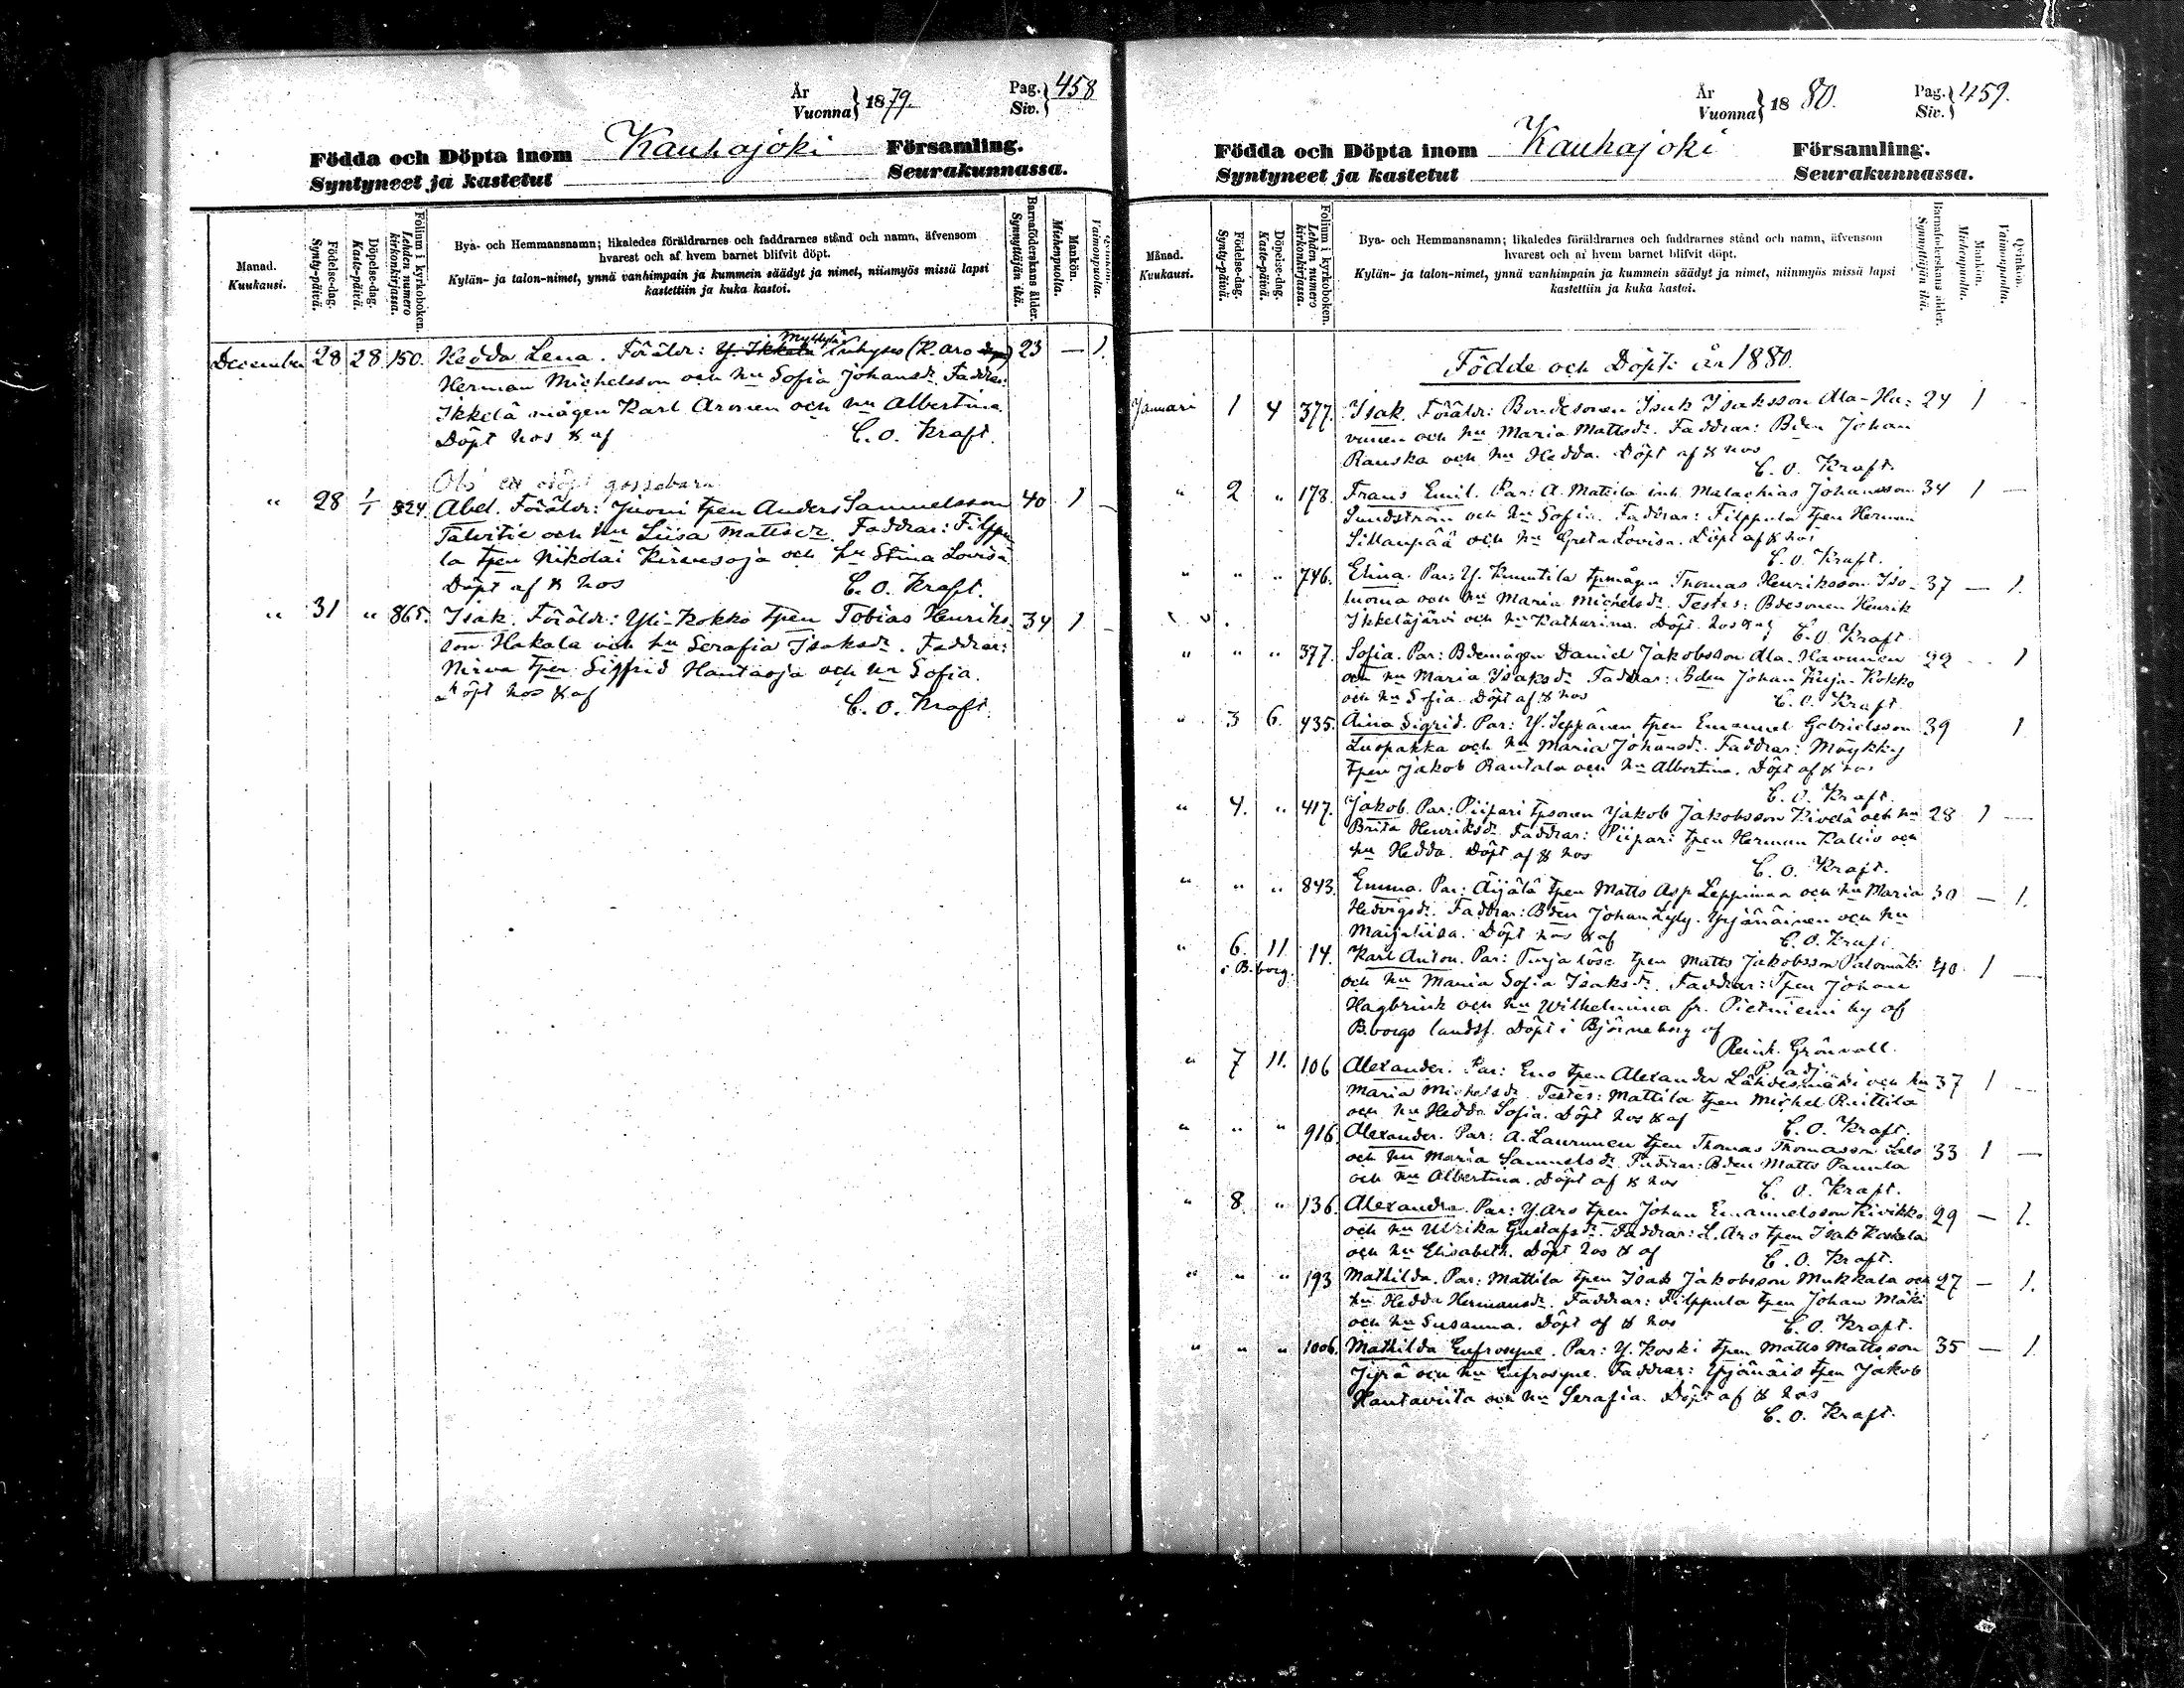 År
Vuonna } 1879.
Pag.
Siv. } 458
Födda och Döpta inom Kauhajoki Församling.
Syntyneet ja kastetut Seurakunnassa.
Manad.
Kuukausi.
Födelse-dag.
Synty-päivä.
Döpelse-dag.
Kaste-päivä.
Folium i kyrkoboken.
Lehden numero kirkonkirjassa.
Bya- och Hemmansnamn; likaledes föräldrarnes och faddrarnes stånd och namn, äfvensom
hvarest och af hvem barnet blifvit döpt.
Kylän- ja talon-nimet, ynnä vanhimpain ja kummein säädyt ja nimet, niinmyös missä lapsi
kastettiin ja kuka kastoi.
Barnaföderskans ålder.
Synnyttäjän ikä.
Mankön.
Miehenpuolta.
Qvinkön.
Vaimonpuolta.
December 28 28 150. Hedda Lena. Föräldr: Y. Ikkala Myllylä inhyses (K. aro 23 — 1.
Herman Michelsson och hu Sofia Johansdr. Faddrar:
Ikkelä mågen Karl Aronen och hu Albertina.
Döpt hos & af C. O. Kraft.
Obs ett gossebarn
" 28 1/1 524. Abel. Föräldr: Juoni tpen Anders Samuelsson 40 1 —
Talvitie och hu Liisa Mattsdr. Faddrar: Filppu
la tpen Nikolai Kirvesoja och hu Stina Lovisa
Döpt af & hos C. O. Kraft.
" 31 " 865. Isak. Föräldr: Yli-Kokko tpen Tobias Henriks- 34 1 —
son Hakala och hu Serafia Isaksdr. Faddrar:
Nirva tpen Sigfrid Hautaoja och hu Sofia.
Döpt hos & af C. O. Kraft.
År
Vuonna } 1880.
Pag.
Siv. } 459.
Födda och Döpta inom Kauhajoki Församling.
Syntyneet ja kastetut Seurakunnassa.
Månad.
Kuukausi.
Födelse-dag.
Synty-päivä.
Döpelse-dag.
Kaste-päivä.
Folium i kyrkoboken.
Lehden numero kirkonkirjassa.
Bya- och Hemmansnamn; likaledes föräldrarnes och faddrarnes stånd och namn, äfvensom
hvarest och af hvem barnet blifvit döpt.
Kylän- ja talon-nimet, ynnä vanhimpain ja kummein säädyt ja nimet, niinmyös missä lapsi
kastettiin ja kuka kastoi.
Barnaföderskans ålder.
Synnyttäjän ikä.
Mankön.
Miehenpuolta.
Qvinkön.
Vaimonpuolta.
Födde och Döpte år 1880.
Januari 1 4 377. Isak. Föräldr: Bondesonen Isak Isaksson Ala-Ha- 24 1 -
vunen och hu Maria Mattsdr. Faddrar: Bden Johan
Rauska och hu Hedda. Döpt af & hos
C. O. Kraft.
" 2 " 178. Frans Emil. Par: A. Mattila inh. Malachias Johansson 34 1 —
Sundström och hu Sofia. Faddrar: Filppula tpen Herman
Sillanpää och hu Greta Lovisa. Döpt af & hos
C. O. Kraft.
" " " 746. Elina. Par: Y. Knuutila tpmågen Thomas Henriksson Iso- 37 — 1.
luoma och hu Maria Michelsdr. Testes: Bdesonen Henrik
Ikkeläjärvi och hu Katharina. Döpt hos & af C. O. Kraft.
" " " 377. Sofia. Par: Bdemågen Daniel Jakobsson Ala-Havunen 22 - 1
och hu Maria Isaksdr. Faddrar: Bden Johan Kuja-Kokko
och hu Sofia. Döpt af & hos C. O. Kraft.
" 3 6. 435. Aina Sigrid. Par: Y. Seppänen tpen Emanuel Gabrielsson 39 1
Luopakka och hu Maria Johansdr. Faddrar: Mäykky
tpen Jakob Rantala och hu Albertina. Döpt af & hos
C. O. Kraft.
" 4. " 417. Jakob. Par: Piipari tpsonen Jakob Jakobsson Kivelä och hu 28 1 —
Brita Henriksdr. Faddrar: Piipari tpen Herman Kallio och
hu Hedda. Döpt af & hos
C. O. Kraft.
" " " 843. Emma. Par: Äijälä tpen Matts Asp Leppinen och hu Maria 30 — 1.
Hedvigsdr. Faddrar: Bden Johan Lyly-Yrjänäinen och hu
Maijaliisa. Döpt hos & af C. O. Kraft.
" 6. 11. 14. Karl Anton. Par: Turja löse tpen Matts Jakobsson Palomäki 40 1 —
i B.borg.
och hu Maria Sofia Isaksdr. Faddrar: Tpen Johan
Hagbrink och hu Wilhelmina fr. Pietniemi by af
B.borgs landsf. Döpt i Björneborg af
Reinh. Grönvall.
P. adj.
" 7 11. 106 Alexander. Par: Eno tpen Alexander Lähdesmäki och hu 37 1 —
Maria Michelsdr. Testes: Mattila tpen Michel Knittila
och hu Hedda Sofia. Döpt hos & af C. O. Kraft.
" " " 916. Alexander. Par: A. Laurunen tpen Thomas Thomasson Salo 33 1 —
och hu Maria Samuelsdr. Faddrar: Bden Matts Panula
och hu Albertina. Döpt af & hos C. O. Kraft.
" 8. " 136. Alexandra. Par: Y. Aro tpen Johan Emanuelsson Kivikko 29 — 1.
och hu Ulrika Gustafsdr. Faddrar: L. Aro tpen Isak Koskela
och hu Elisabeth. Döpt hos & af C. O. Kraft.
" " " 193 Mathilda. Par: Mattila tpen Isak Jakobsson Mukkala och 27 — 1.
hu Hedda Hermansdr. Faddrar: Filppula tpen Johan Mäki
och hu Susanna. Döpt af & hos C. O. Kraft.
" " " 1006. Mathilda Eufrosyne. Par: Y. Koski tpen Matts Mattsson 35 — 1.
Jyrä och hu Eufrosyne. Faddrar: Yrjänäis tpen Jakob
Hautaviita och hu Serafia. Döpt af & hos
C. O. Kraft.